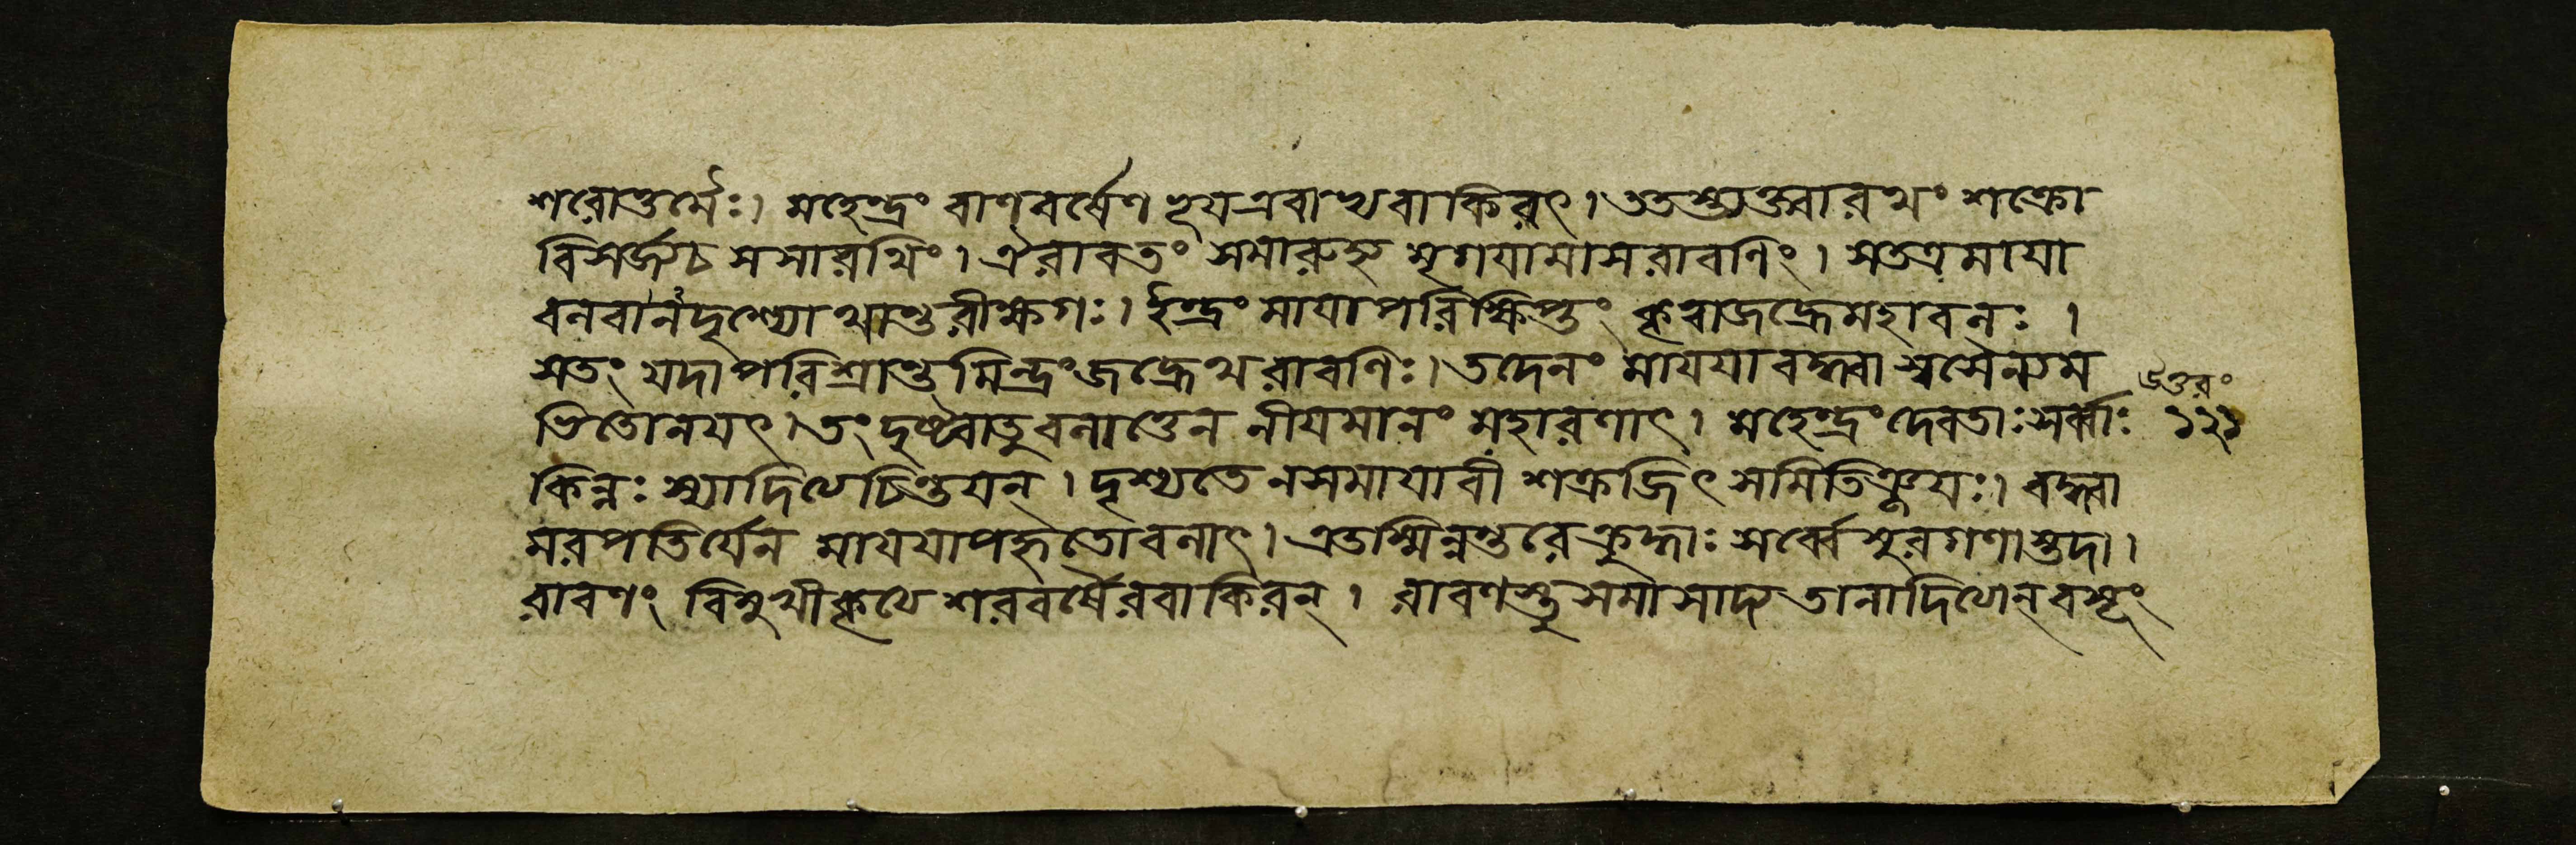 শরোত্তমৈঃ। মহেন্দ্রং বাণবর্ষেণ হূযএবাভ্যবাকিরৎ। ততস্ত্যক্ত্বারথং শক্রো
বিসর্জ্জচ সসারথিং। ঐরাবতং সমারুহ্য মৃগযামাসরাবণিং। সতত্রমাযা
বলবানদৃশ্যোথান্তরীক্ষগঃ। ইন্দ্রং মাযাপরিক্ষিপ্তং কৃত্বাজহ্রেমহাবলঃ।
সতং যদাপরিশ্রান্তমিন্দ্রংজহ্রেথরাবণিঃ। তদেনং মাযযাবদ্ধ্বা স্বসৈন্যম
ভিতোনযৎ। তংদৃষ্ট্বাতুবলাত্তেন নীযমানং মহারণাৎ। মহেন্দ্রংদেবতাঃসর্ব্বাঃ
উত্তরং
১২১
কিন্নঃ স্যাদিত্যচিন্তযন্। দৃশ্যতে নসমাযাবী শক্রজিৎ সমিতিঞ্জযঃ। বদ্ধ্বা
মরপতির্যেন মাযযাপহৃতোবলাৎ। এতস্মিন্নন্তরেক্রুদ্ধাঃ সর্ব্বেসুরগণাস্তদা।
রাবণং বিমুখীকৃত্য শরবর্ষৈরবাকিরন্। রাবণস্তুসমাসাদ্যতানাদিত্যান্বসূং